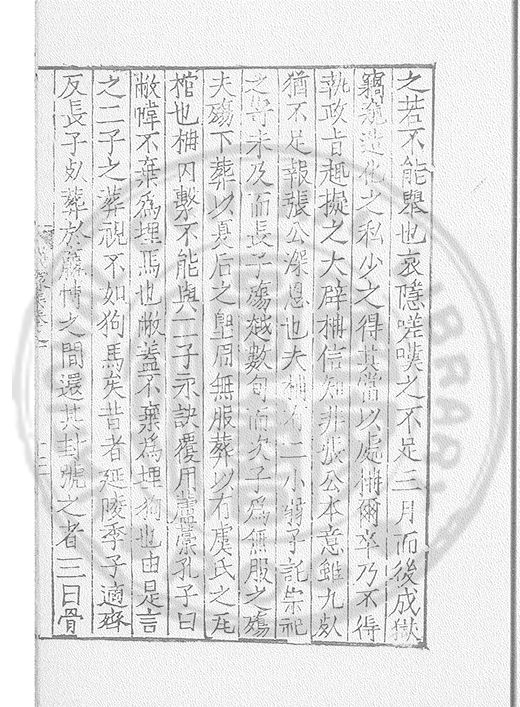 之若不能舉也哀隱嗟嘆之不足三月而後成獄
竊造化之私少之得其當以處柟爾卒乃不得
執政旨趣擬之大辟柟信知非張公本意雖九死
猶不足報張公深恩也夫柟有二小弱子託崇祀
之寄未及而長子殤越數旬而次子為無服之殤
夫殤下葬以夏后之堲周無服葬以有虞氏之瓦
棺也柟囚繫不能與二子永訣覆用虆孔子曰
敝帷不棄為埋馬也敝蓋不棄為埋狗也由是言
之二子之葬視不如狗馬矣昔者延陵季子適齊
反長子死葬於嬴博之間還其封號之者三曰骨